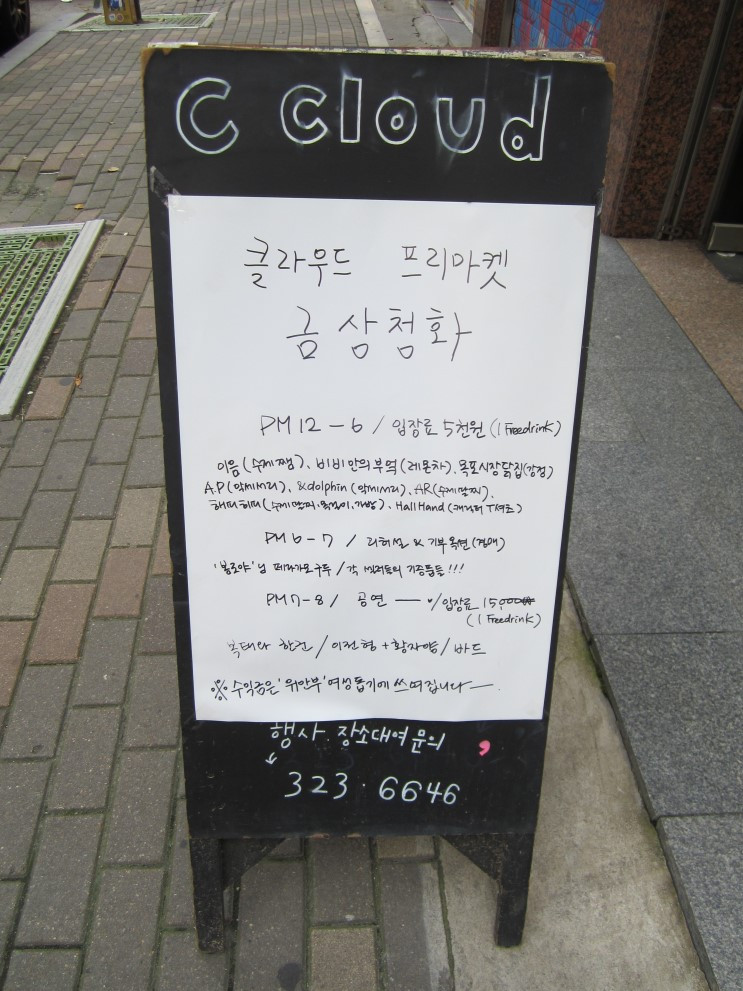 C Cloud
클라우드 프리마켓
금상첨화
PM 12 - 6 / 입장료 5천원 (1 Freedrink)
이음(수제잼), 비비안의부엌(레몬차), 목포시장닭집(강정)
A.P(악세서리), &dolphin(악세서리), AR(수제팔찌),
해피히피(수제팔찌, 목걸이, 가방), HallHand(캐릭터 T셔츠)
PM 6 - 7 / 리허설 & 기부옥션(경매)
님 페라가모구두 / 각 셀러들의 기증품들!!!
PM 7 - 8 / 공연 — 입장료 15,000
(1 Freedrink)
한건 / 이전형 + 황자양 / 바드
※ 수익금은 '위안부' 여성돕기에 쓰여집니다—.
행사. 장소대여문의
323 · 6646